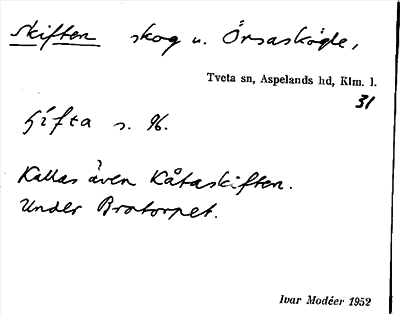 Skiften skog u. Örsaskögle,
Tveta sn, Aspelands hd, Klm. l.
31
s. 96.
Kallas även Kåtaskiften.
Under Brotorpet.
Ivar Modéer 1952